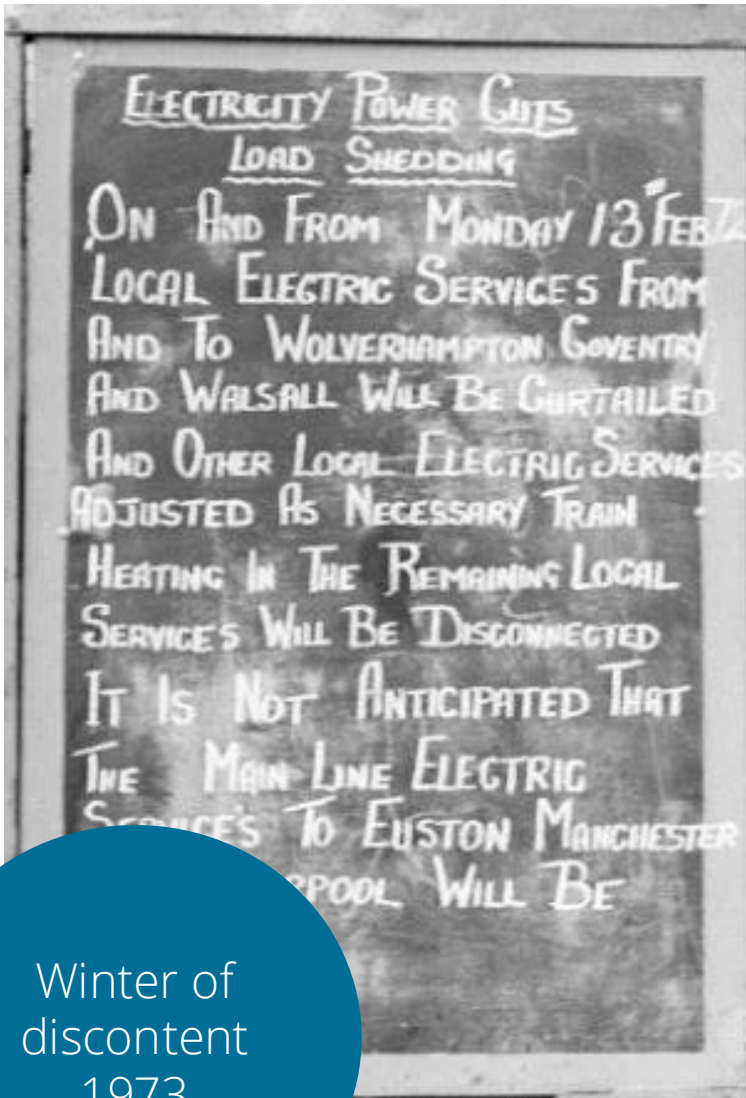 ELECTRICITY POWER CUTS
LOAD SHEDDING
ON AND FROM MONDAY 13TH FEB 72
LOCAL ELECTRIC SERVICES FROM
AND TO WOLVERHAMPTON COVENTRY
AND WALSALL WILL BE CURTAILED
AND OTHER LOCAL ELECTRIC SERVICES
ADJUSTED AS NECESSARY TRAIN
HEATING IN THE REMAINING LOCAL
SERVICE'S WILL BE DISCONNECTED
IT IS NOT ANTICIPATED THAT
THE MAIN LINE ELECTRIC
SERVICE'S TO EUSTON MANCHESTER
WILL BE
Winter of
discontent
1973